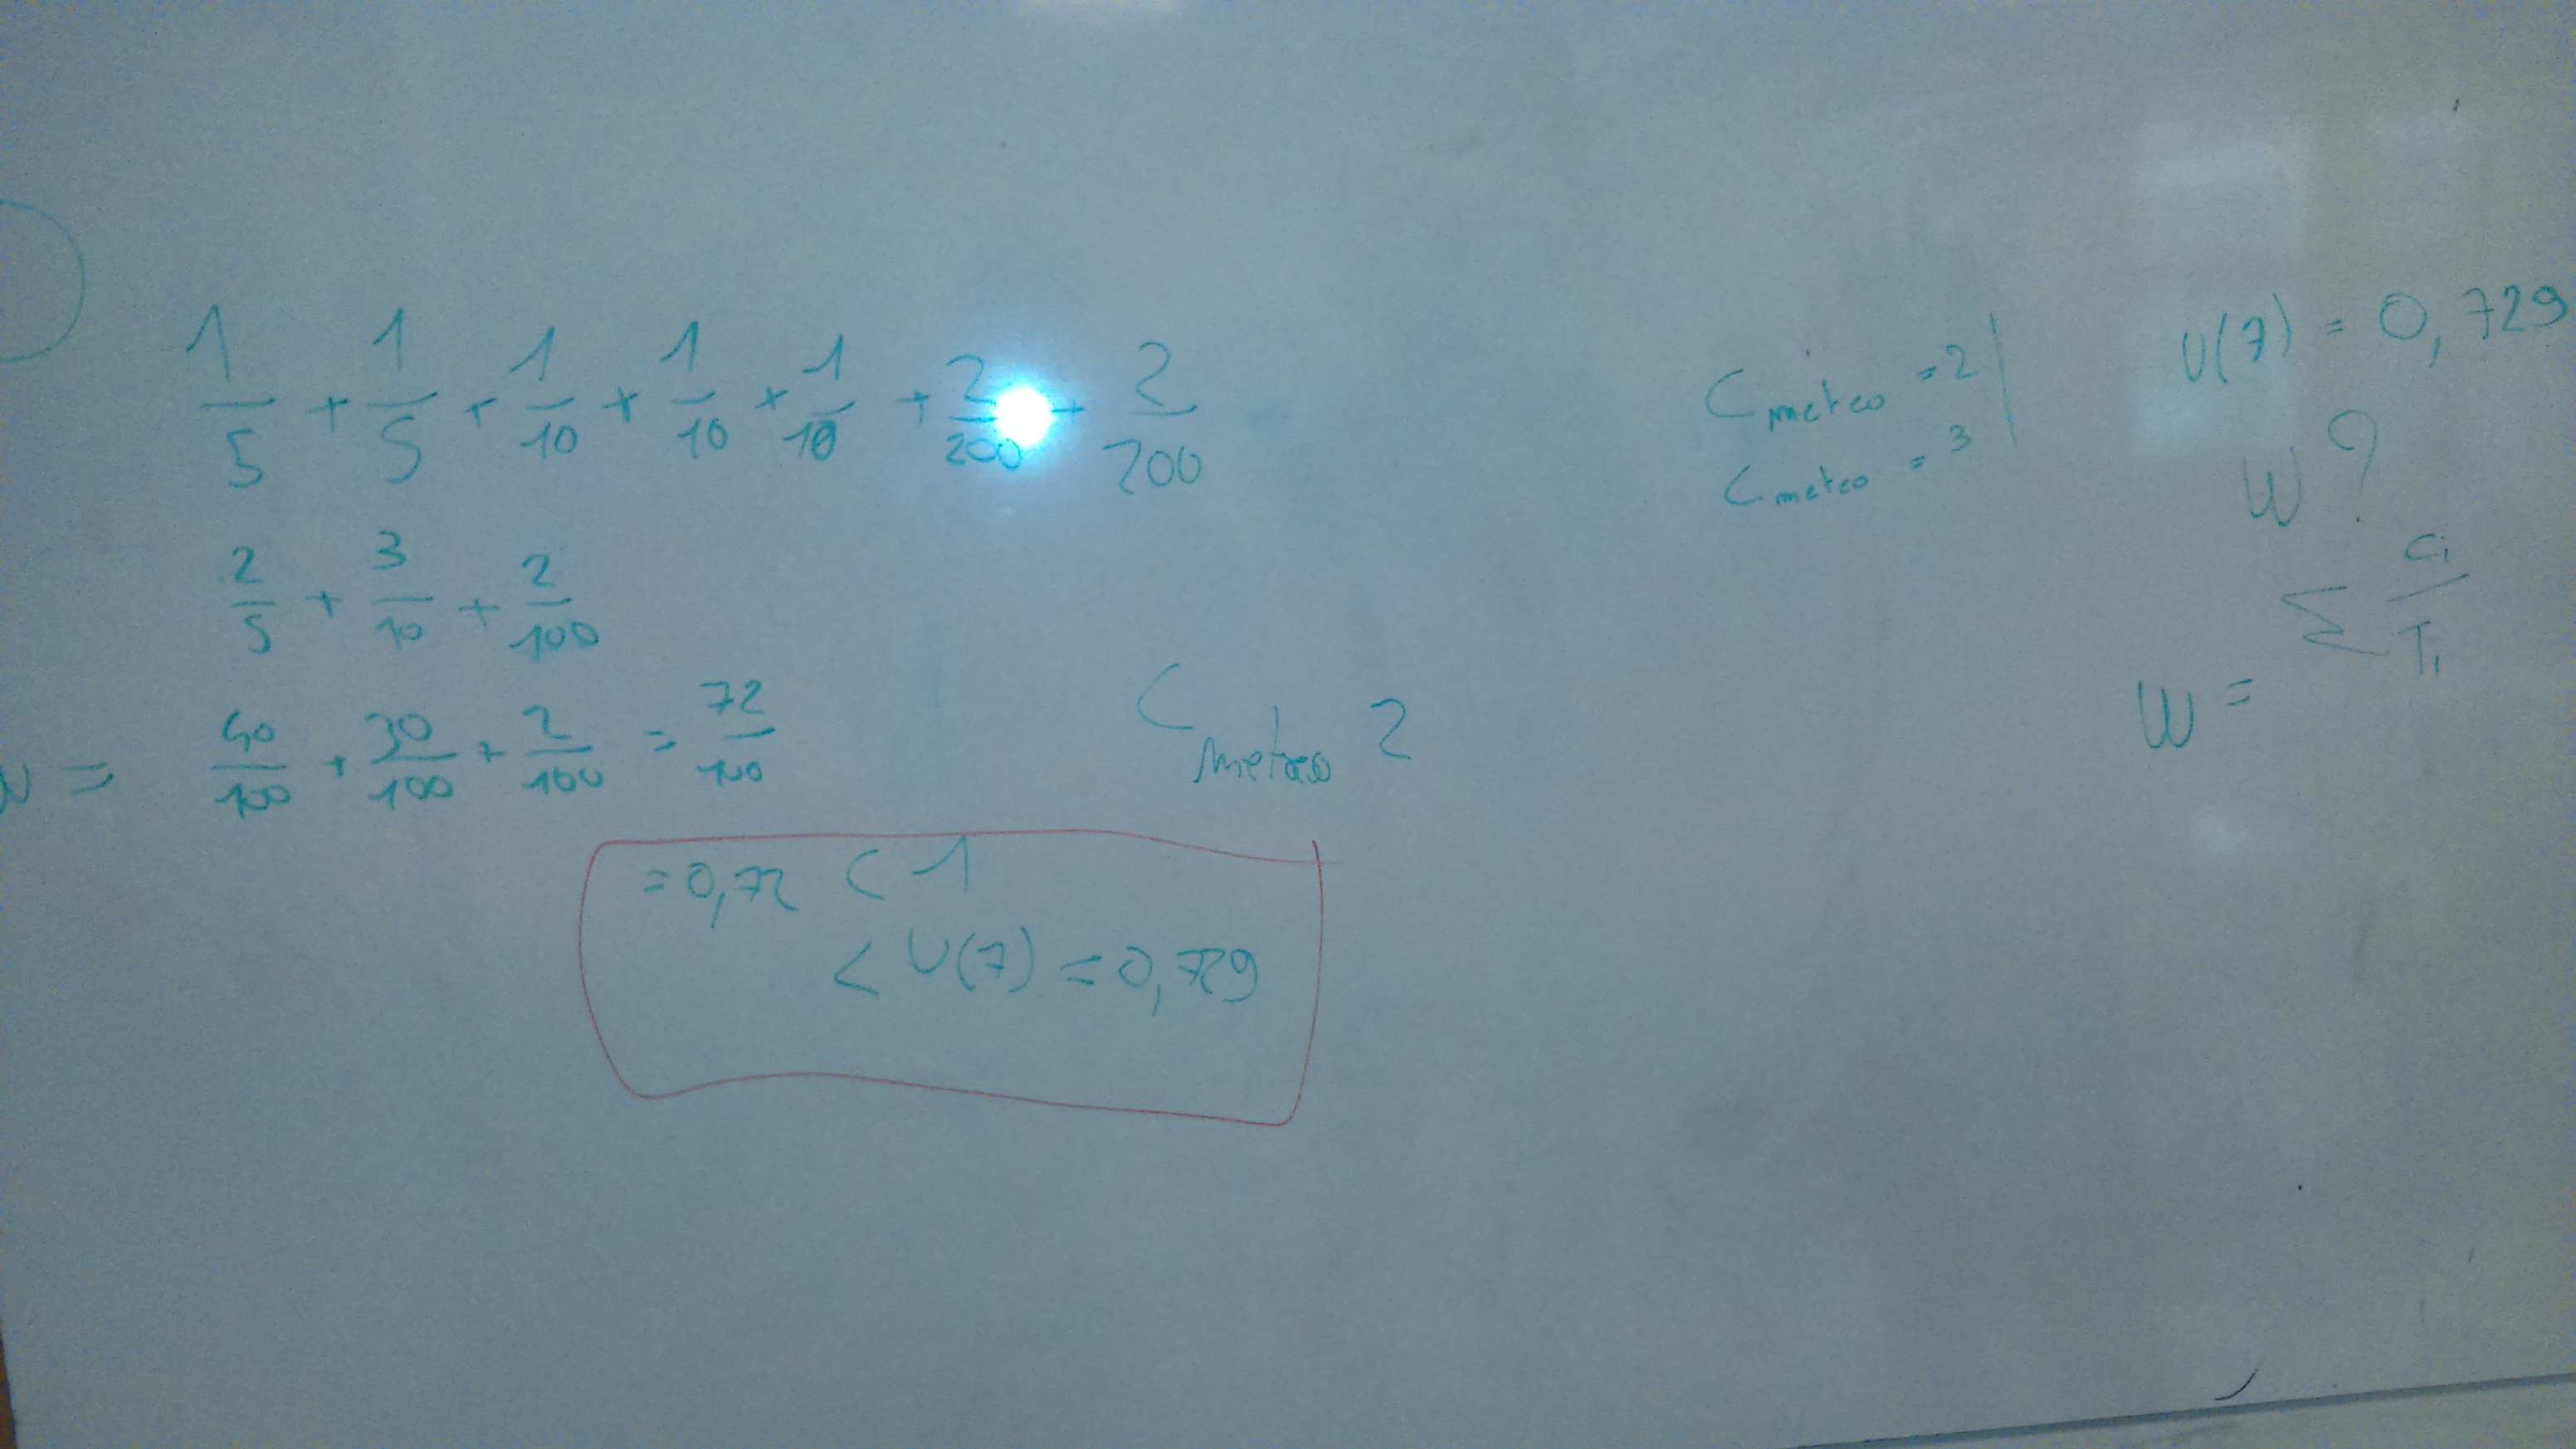 1/5 + 1/5 + 1/10 + 1/10 + 1/10 + 2/200 + 2/200
2/5 + 3/10 + 2/100
= 40/100 + 30/100 + 2/100 = 72/100
C meteo 2
= 0,72 < 1
< U(7) = 0,729
C meteo = 2
C meteo = 3
U(7) = 0,729
W ?
Σ Ci/Ti
W =